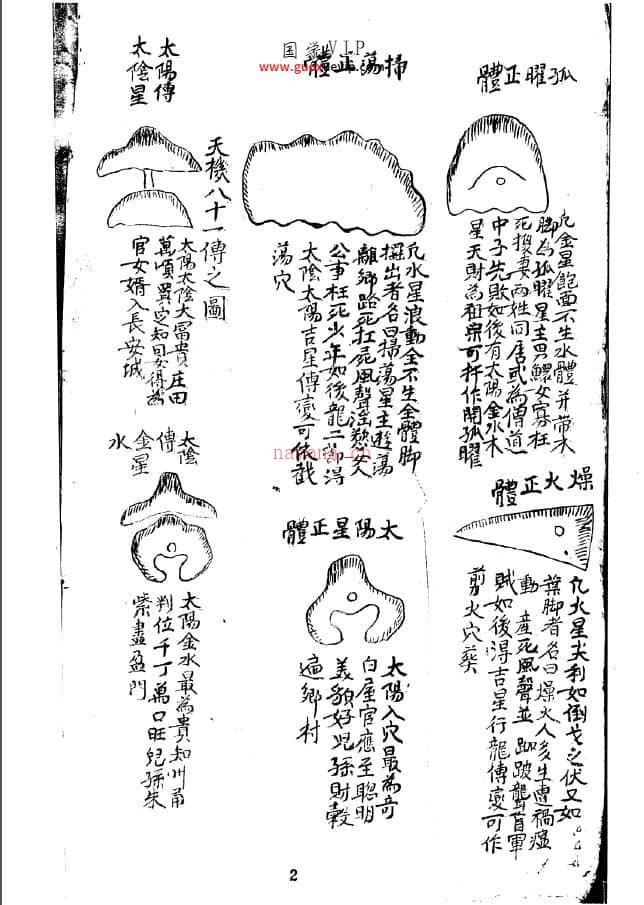 国学VIP
www.guoxuevip.com
孤曜正體
凡金星飽面不生水體并帶木
脚為孤曜星主男鰥女寡枉
死換妻兩姓同居或為僧道
中子先敗如後有太陽金水木
星天財為祖宗可扦作開孤曜
燥火正體
凡火星尖利如倒戈之伏又如
葉脚者名曰燥火人多生遭禍瘟
動產死風聲並跏跛聾盲軍
賊如後得吉星行龍傳變可作
剪火穴葬
掃蕩正體
凡水星浪動全不生金體脚
擺出者名曰掃蕩星主遊蕩
離鄉路死扛屍風聲淫慾女人
公事枉死少年如後龍二得
太陰太陽吉星傳變可作截
蕩穴
太陽星正體
太陽入穴最為奇
白屋官應至聰明
美貌好兒孫財穀
遍鄉村
天機八十一傳之圖
太陽傳
太陰星
太陽太陰大富貴庄田
萬頃異定知因女得為
官女婿入長安城
太陰
傳
金星
水
太陽金水最為貴知州甭
判位千丁萬口旺兒孫朱
紫盡盈門
nayona.cn
2